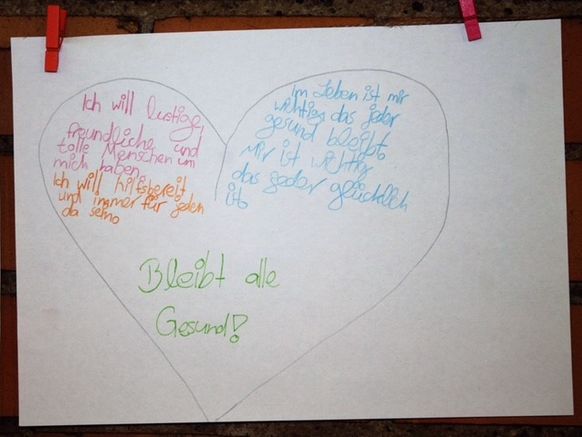 Ich will lustige,
freundliche und
tolle Menschen um
mich haben.
Ich will hilfsbereit
und immer für jeden
da sein.
Im Leben ist mir
wichtig das jeder
gesund bleibt.
Mir ist wichtig
das jeder glücklich
ist.
Bleibt alle
Gesund!